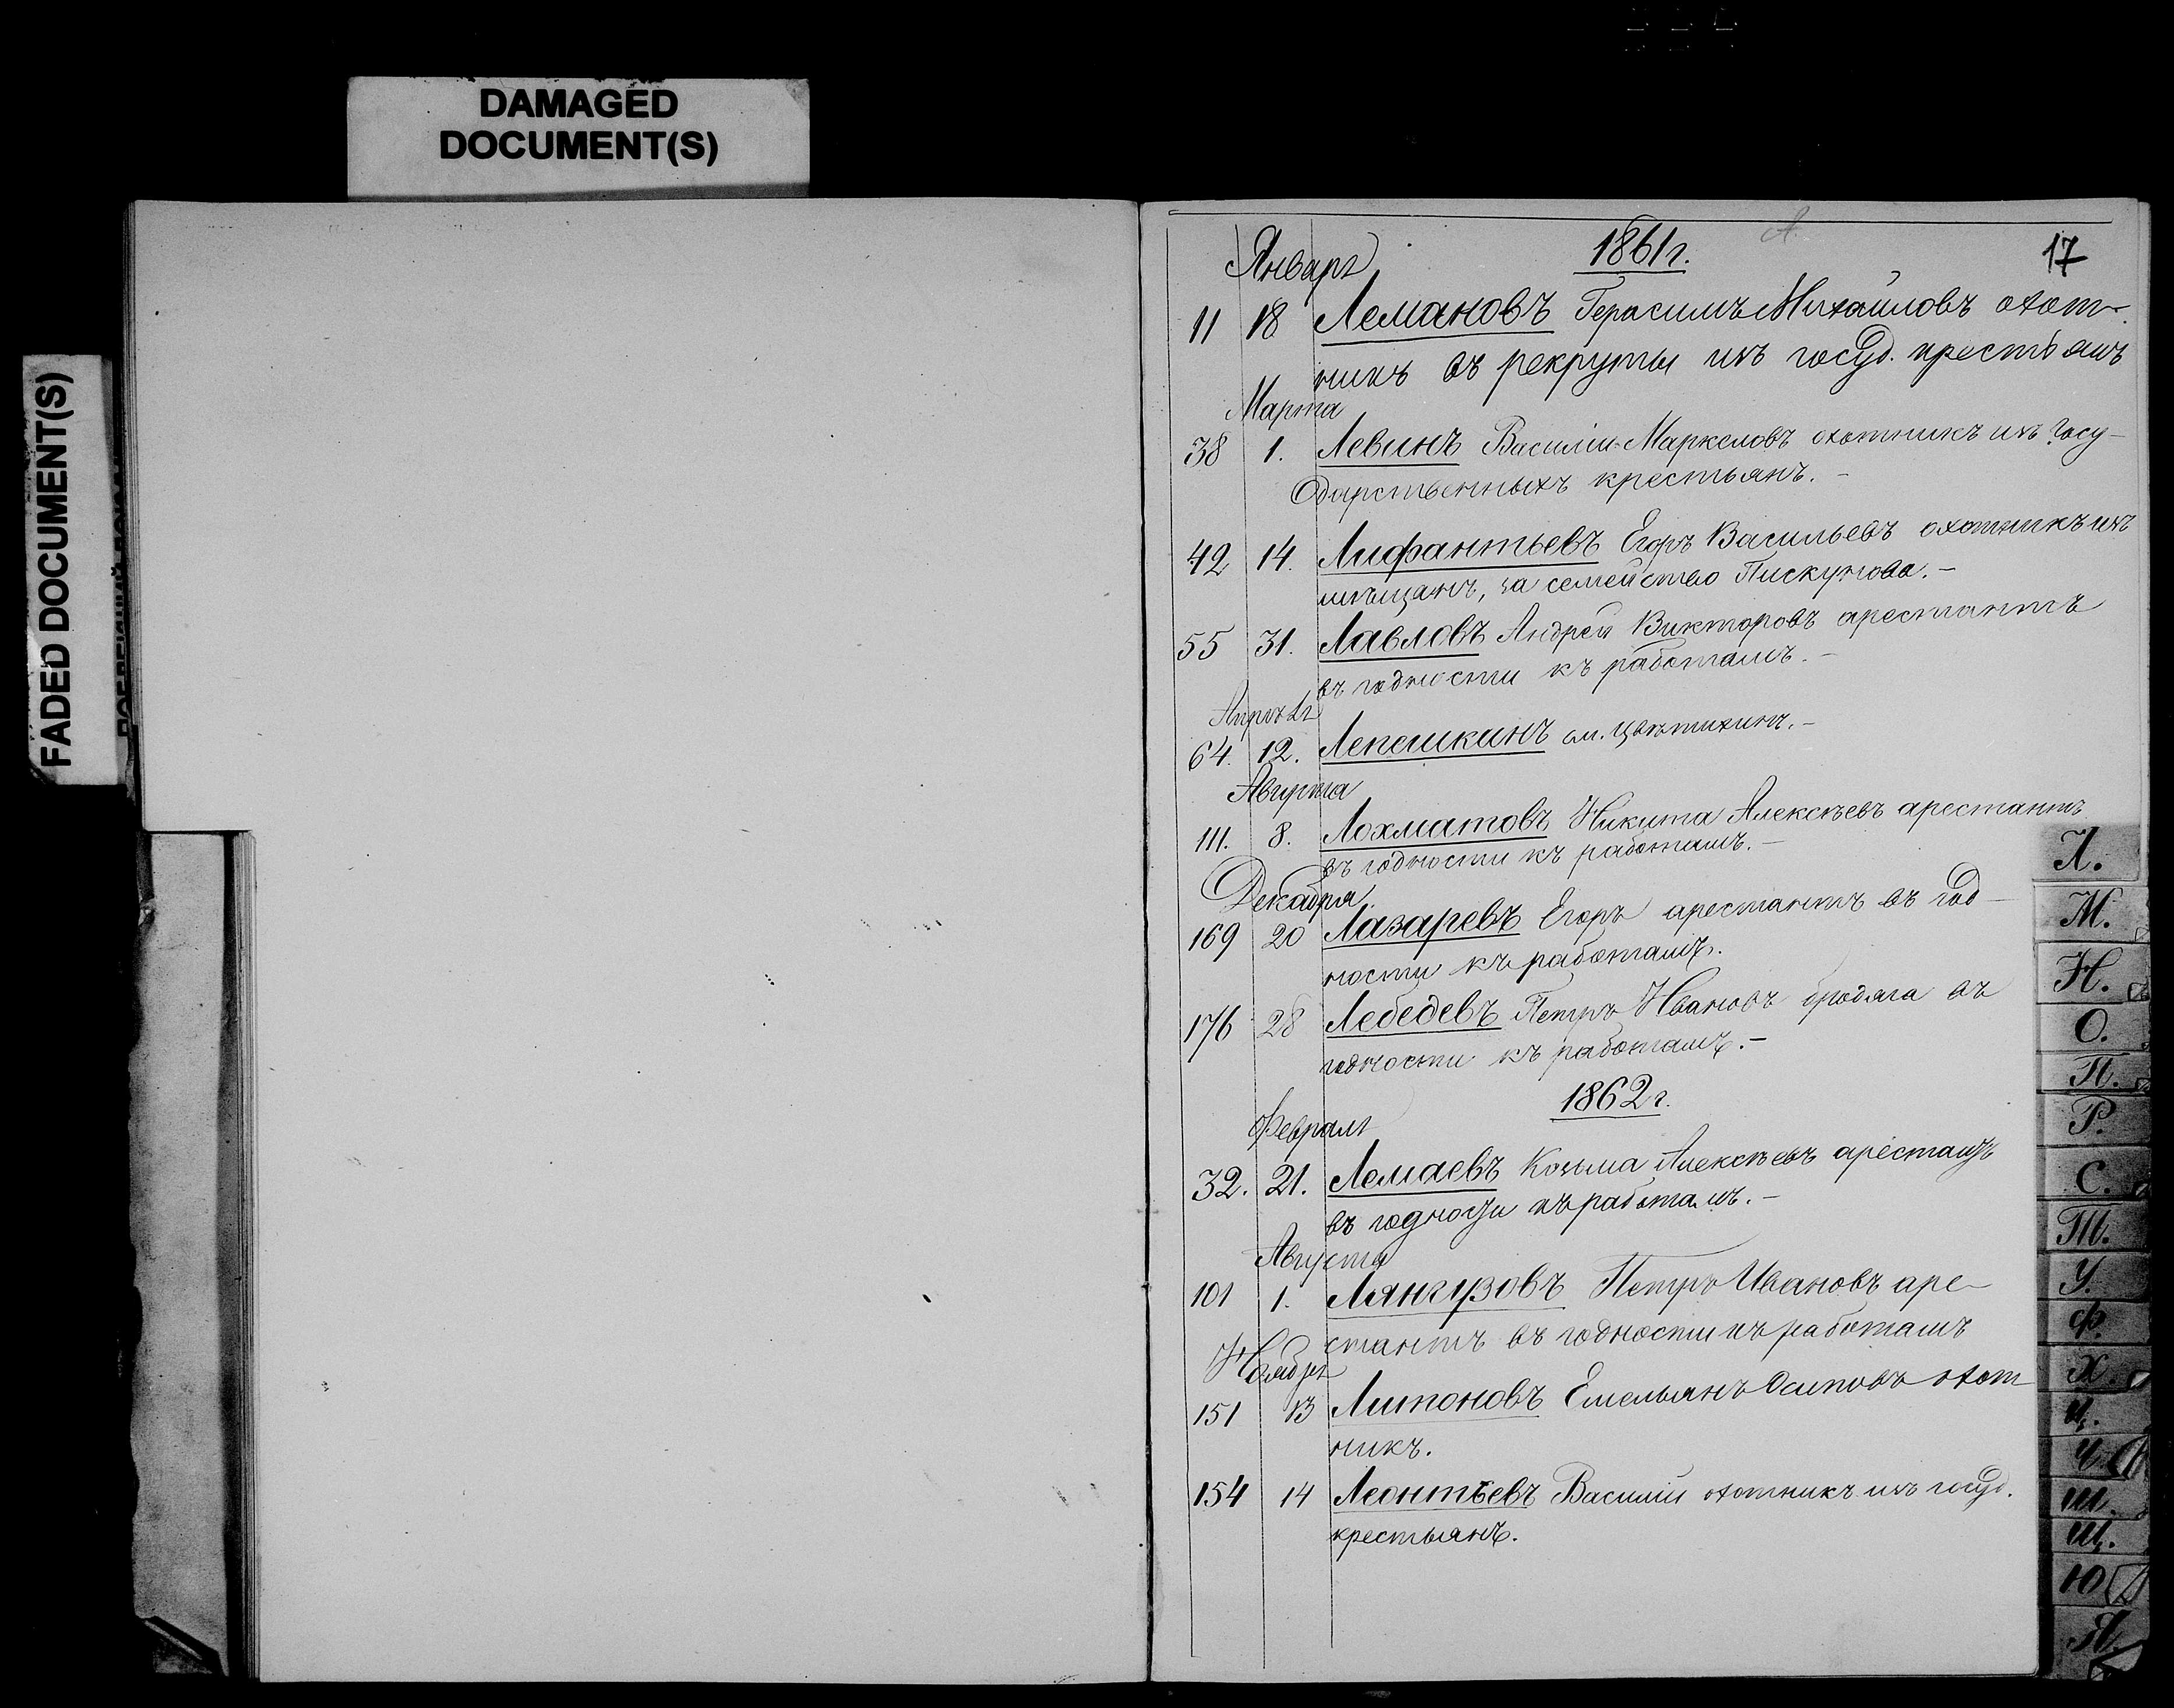 DAMAGED
DOCUMENT(S)
FADED DOCUMENT(S)
1861 г.
17
Январь
11 18 Лемановъ Герасимъ Михайловъ охот-
никъ въ рекруты изъ госуд. крестьянъ
Марта
38 1. Левинъ Василій Маркеловъ охотникъ изъ Госу-
дарственныхъ крестьянъ. –
42 14. Лифантьевъ Егоръ Васильевъ охотникъ изъ
мѣщанъ, за семейство Пискунова. –
55 31. Лавловъ Андрей Викторовъ арестантъ
въ годности къ работамъ. –
Апрѣль
64. 12. Лепешкинъ см. Цвѣтихинъ. –
Августа
111. 8. Лохматовъ Никита Алексѣевъ арестантъ
въ годности къ работамъ. –
Декабря.
169 20 Лазаревъ Егоръ арестантъ въ год-
ности къ работамъ.
176 28 Лебедевъ Петръ Ивановъ бродяга въ
годности къ работамъ. –
1862 г.
Февраль
32. 21. Лемаевъ Козьма Алексѣевъ арестантъ
въ годности къ работамъ. –
Августа
101 1. Лянгузовъ Петръ Ивановъ аре-
стантъ въ годности къ работамъ
Ноябрь
151 13 Литоновъ Емельянъ Осиповъ охот
никъ.
154 14 Леонтьевъ Василій охотникъ изъ госуд.
крестьянъ.
Л.
М.
Н.
О.
П.
Р.
С.
Т.
У.
Ф.
Х.
Ц.
Ч.
Ш.
Щ.
Ю
Я.